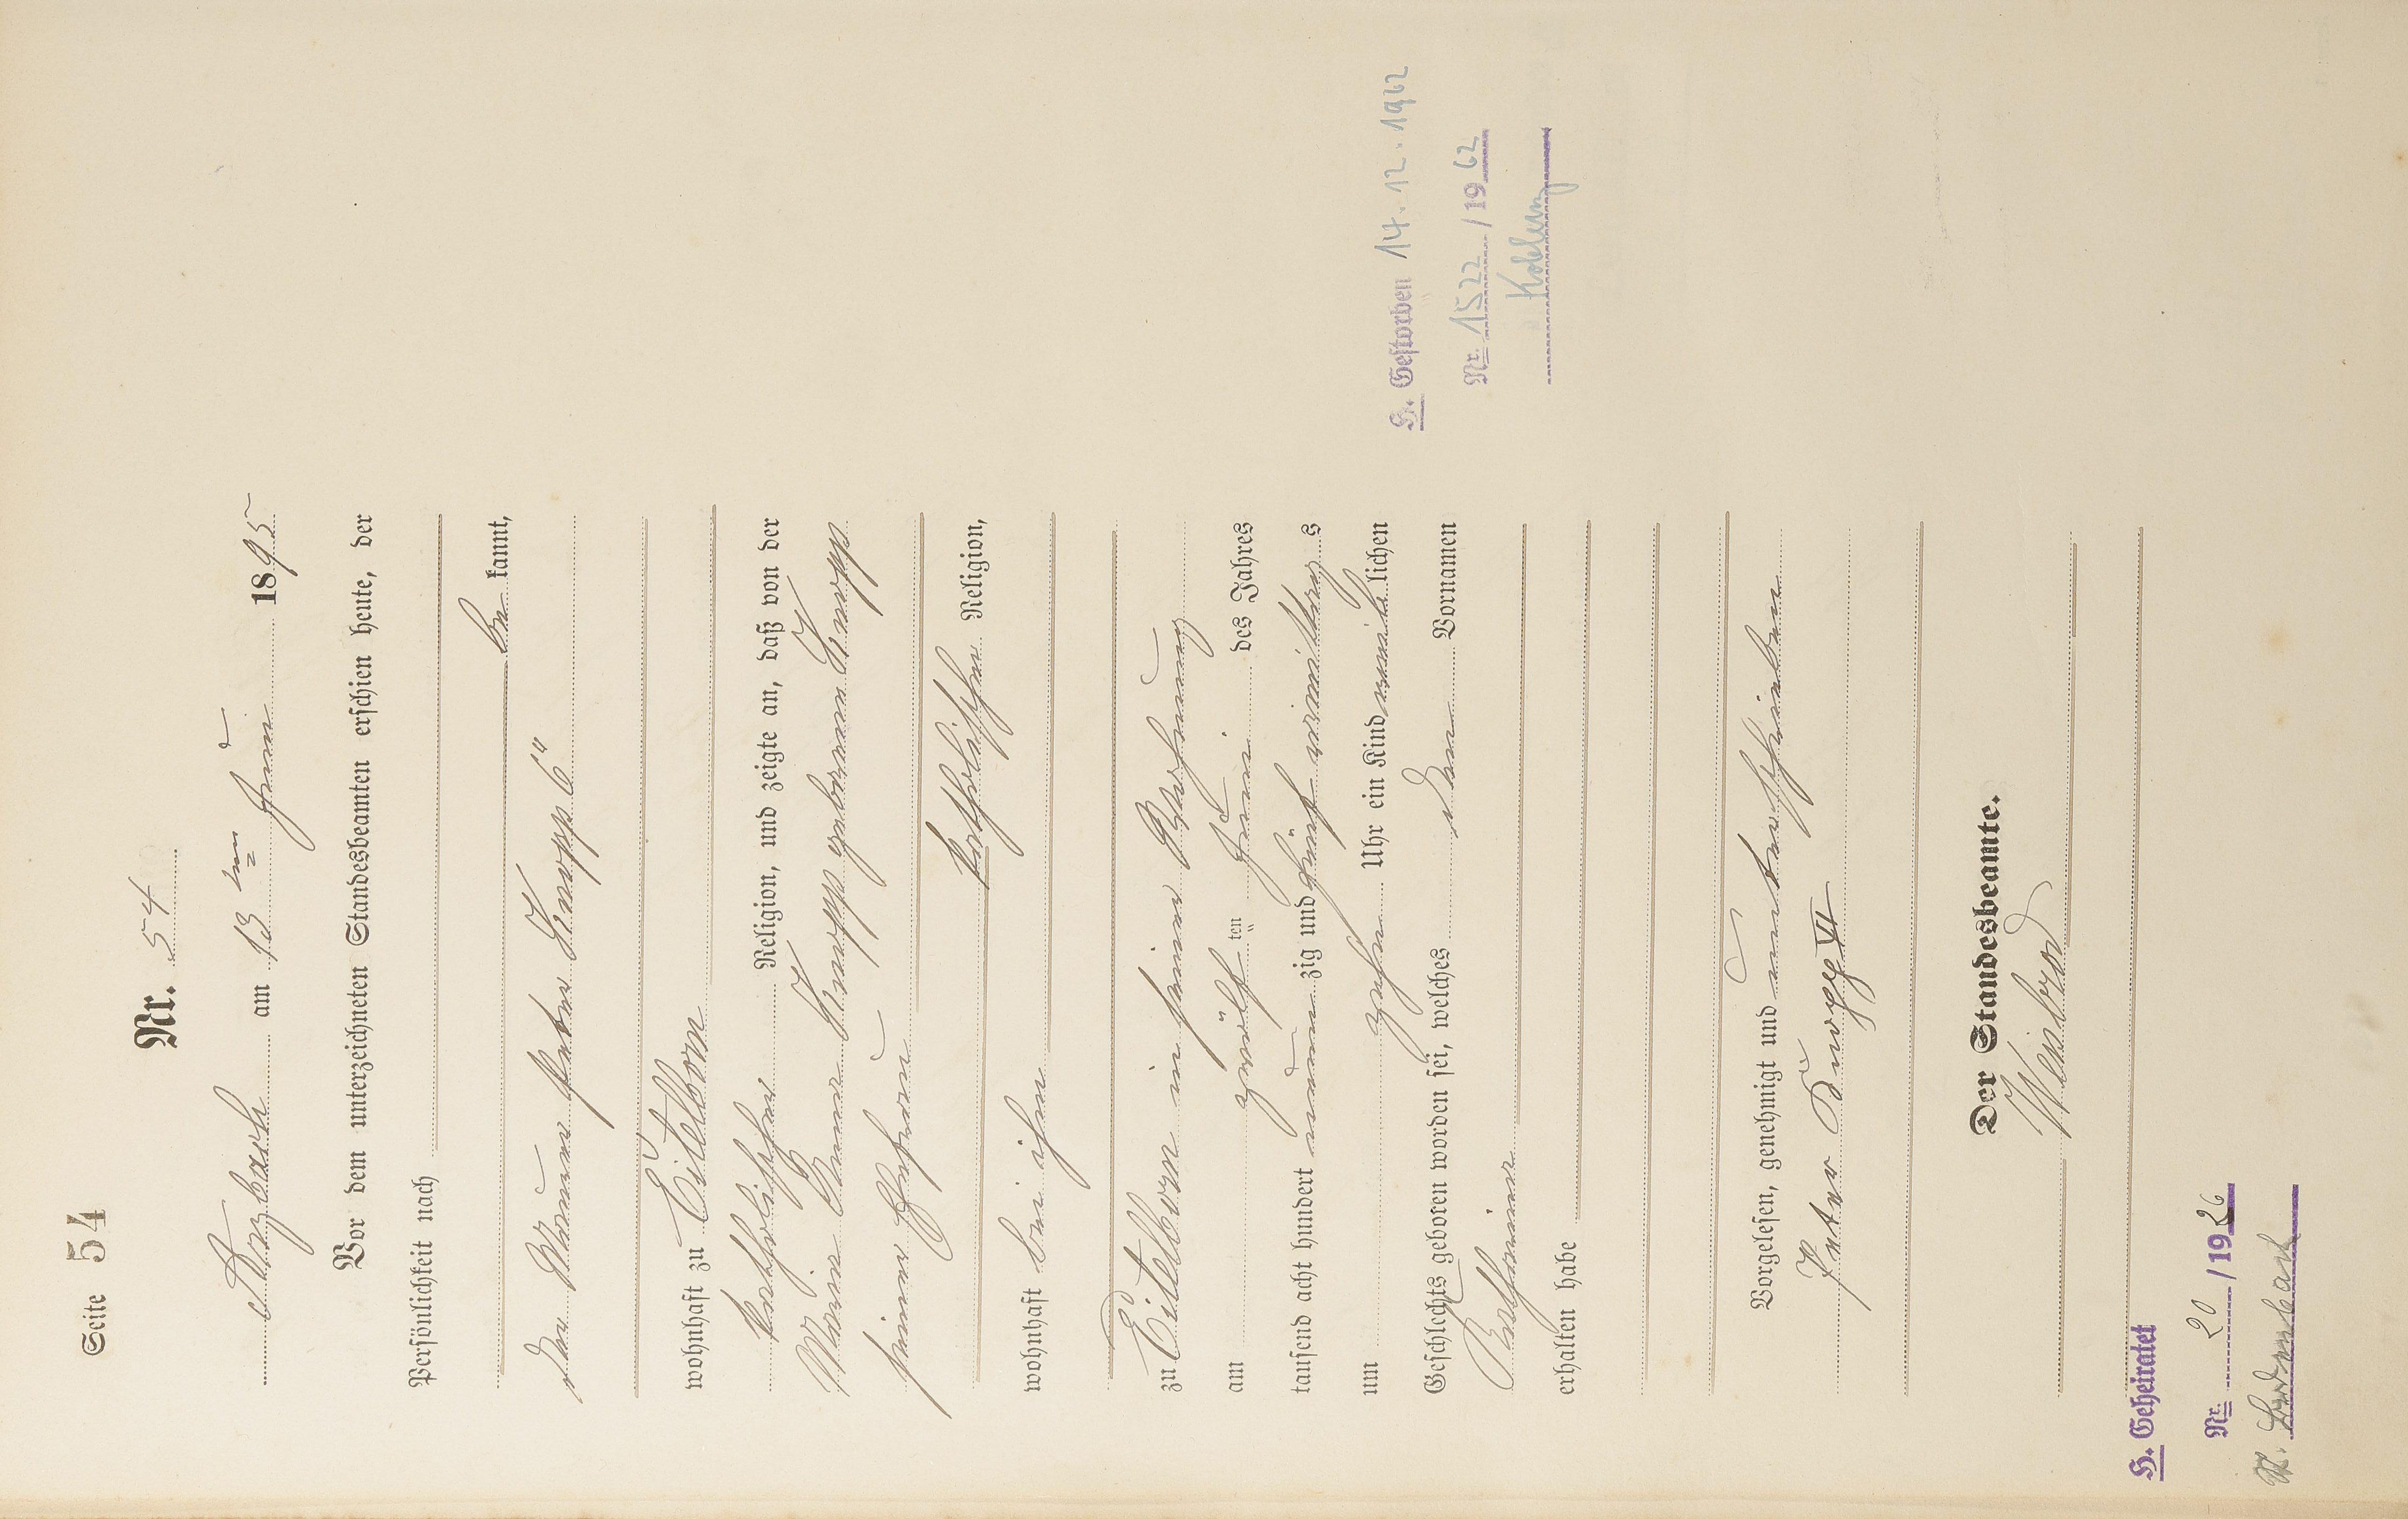 Seite 54
Nr. 54
Arzbach am 13ten Juni 1895
Vor dem unterzeichneten Standesbeamten erschien heute, der
Persönlichkeit nach
bekannt,
der Maurer Peter Knopp 6"
wohnhaft zu Eitelborn
katholischer Religion, und zeigte an, daß von der
Maria Anna Knopp geborenen Knopp
seiner Ehefrau
katholischen Religion,
wohnhaft bei ihm
zu Eitelborn in seiner Wohnung
am zwölften Juni des Jahres
tausend acht hundert neunzig und fünf vormittags
um zehn Uhr ein Kind männlichen
Geschlechts geboren worden sei, welches den Vornamen
erhalten habe
Vorgelesen, genehmigt und unterschrieben
Peter Knopp VI
Der Standesbeamte.
Weisbrod
H. Geheiratet
Nr. 20 /1926
H. Gestorben 14.12.1962
Nr. 1522 /1962
Koblenz